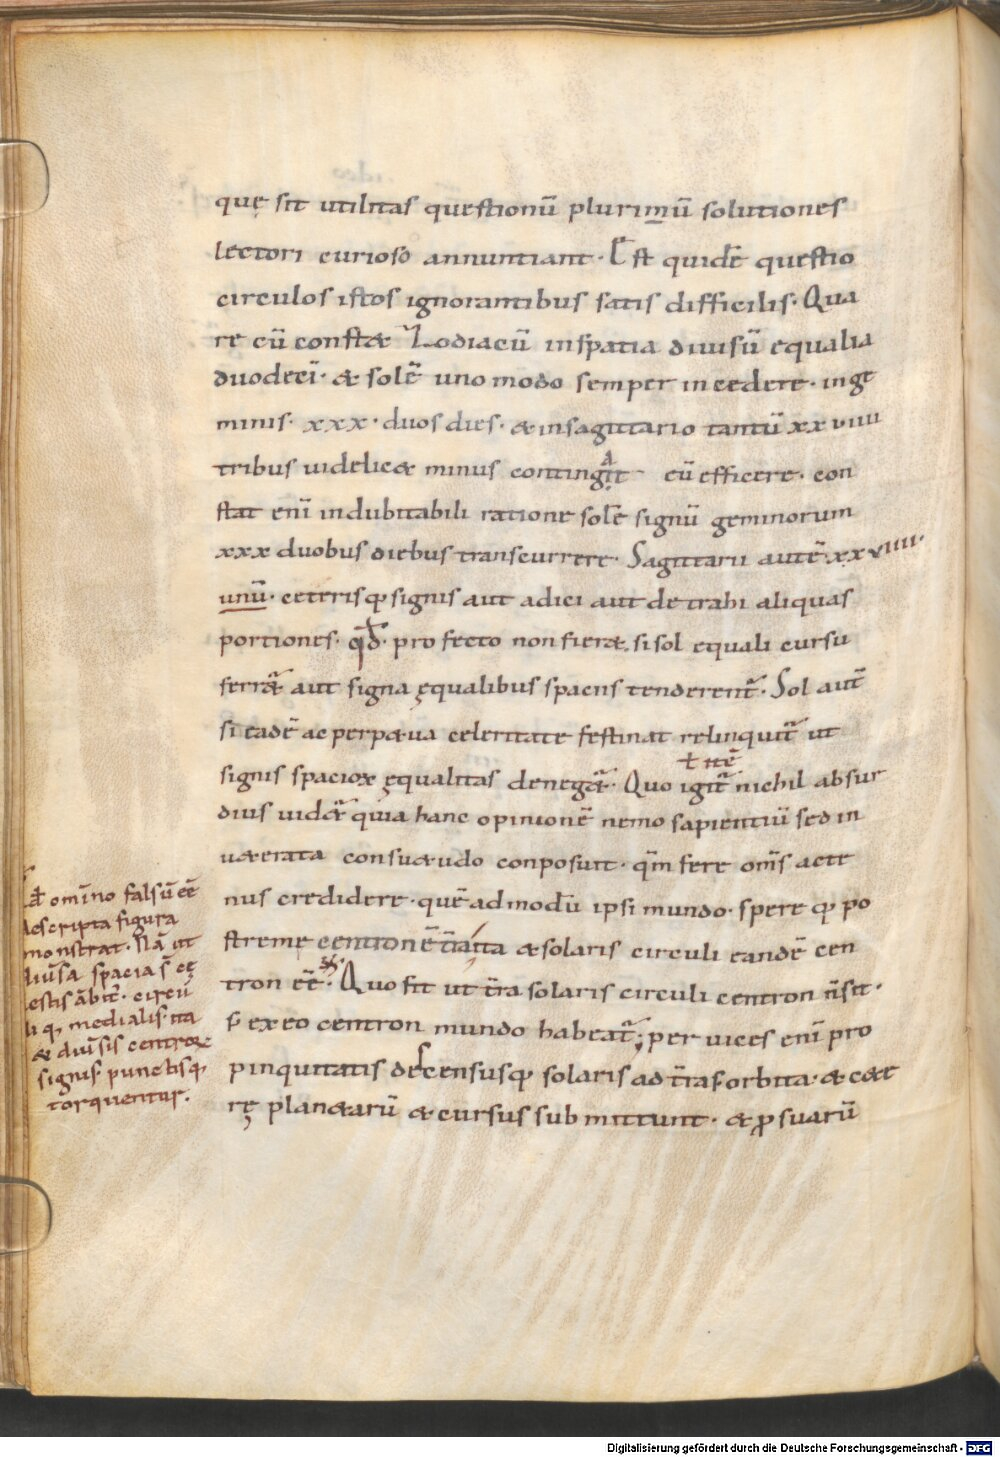 quę sit utilitas questionū plurimū solutiones
lectori curioso annuntiant · Est quidē questio
circulos istos ignorantibus satis difficilis · Qua
re cū constæ Zodiacū in spatia diuisū equalia
duodecī · & solē uno modo semper incedere · in ge
minis · xxx · duos dies · & in sagittario tantū xxviiii
tribus uidelic& minus contingit a cū efficere · con
stat enī indubitabili ratione solē signū geminorum
xxx duobus diebus transcurrere · Sagittarii autē xxviiii ·
unū · ceterisq; signis aut adici aut detrahi aliquas
portiones · qđ · profecto non fier& · si sol equali cursu
ferr&̃ aut signa ęqualibus spaciis tenderent̃ · Sol aut̄
si eadē ac perp&ua celeritate festinat relinquit̃ ut
ł nē
signis spacioꝝ ęqualitas deneg&̃ · Quo igit̃ nichil absur
dius uid&̃ quia hanc opinionē nemo sapientiū sed in
u&erata consu&udo conposuit · qm̄ fere om̄s acte
nus credidere · quē ad modū ipsi mundo · spere q; po
streme centron ē t̄ra ita & solaris circuli eandē cen
tron eē · Quo fit ut t̄ra solaris circuli centron n̄ sit ·
s; ex eo centron mundo habeat̃; per uices enī pro
pinquitatis descensusq; solaris ad t̄ras orbita · & c&e
rę plan&arū & cursus submittunt · & ꝓ suarū
qđ omīno falsū eē
descripta figura
monstrat · Nā ut
diuisa spacia s̄ cę
lestis ābit̄ · circu
li q; medialis · ita
& diuīsis centroꝝ
signis · punctisq;
torquentur ·
Digitalisierung gefördert durch die Deutsche Forschungsgemeinschaft - DFG